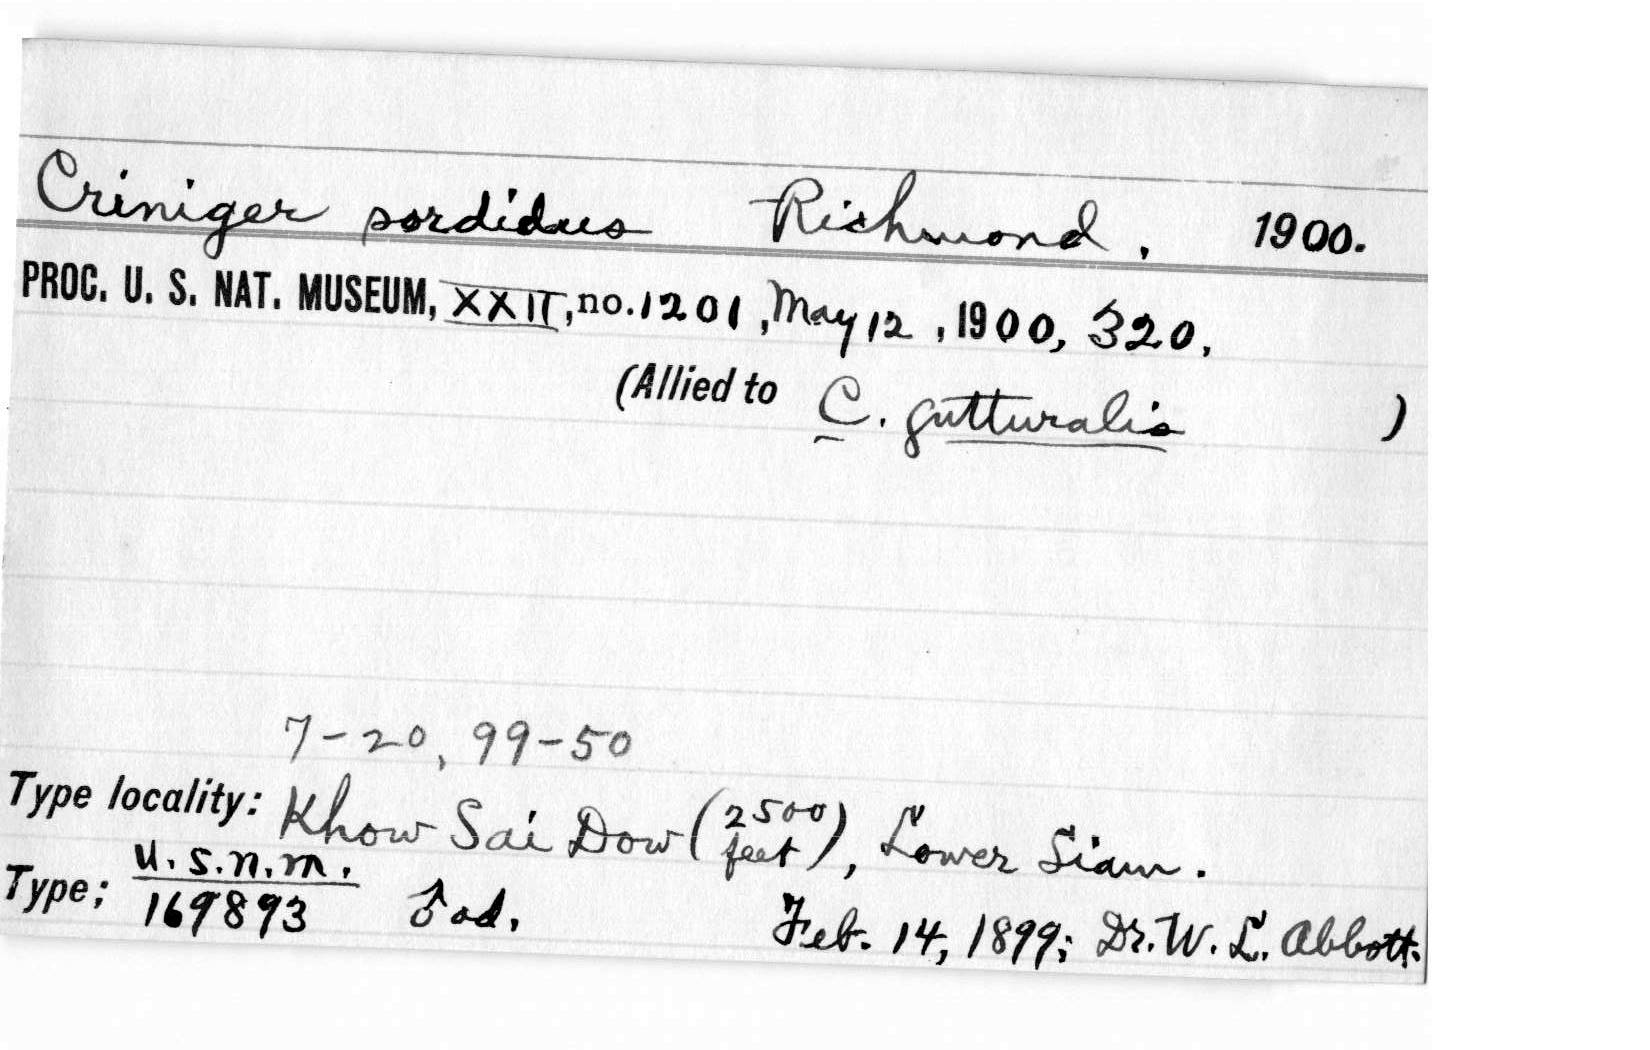 Criniger sordidus Richmond, 1900.
PROC. U. S. NAT. MUSEUM, XXII, no. 1201, May 12, 1900, 320.
(Allied to C. gutturalis )
7-20, 99-50
Type locality: Khow Sai Dow (2500 feet), Lower Siam.
Type; U.S.N.M. 169893 ♂ ad. Feb. 14, 1899; Dr. W. L. Abbott.